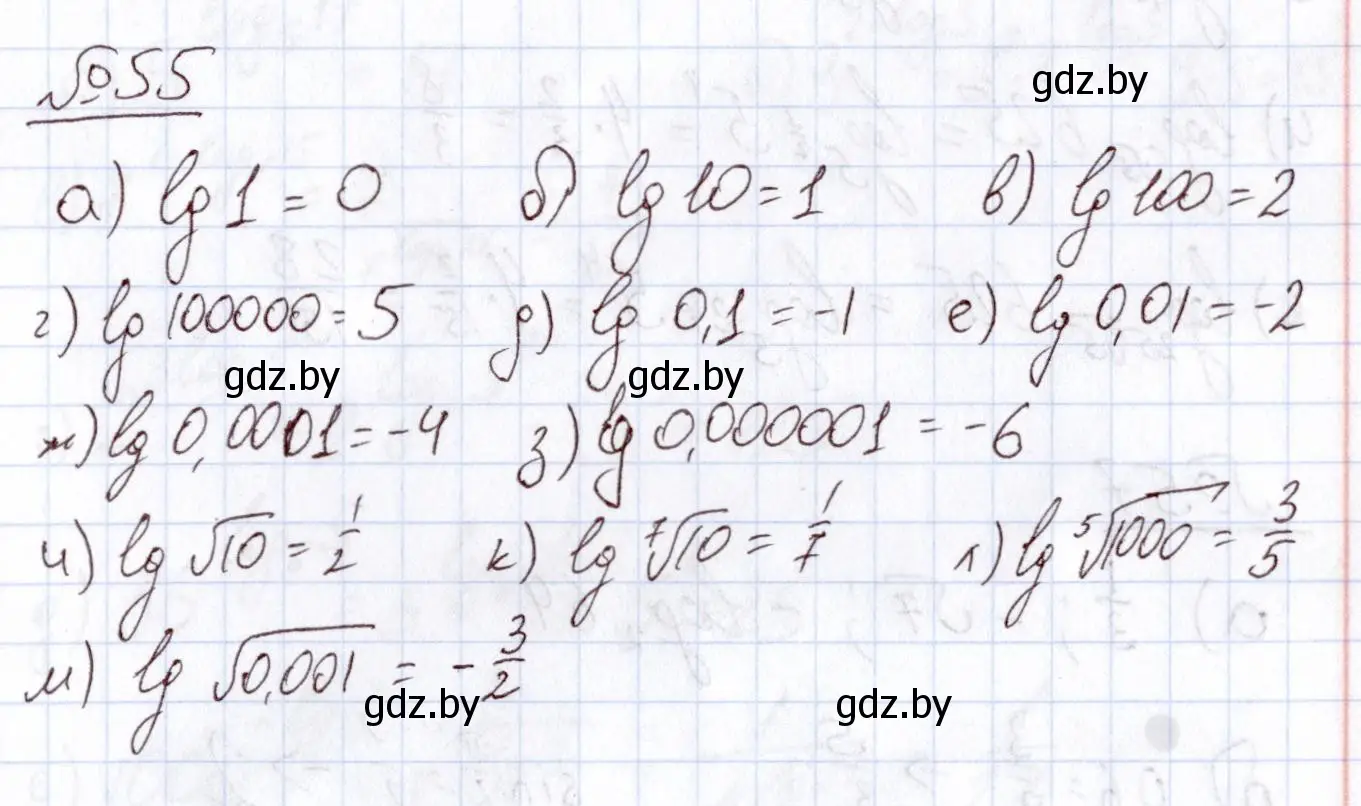 №55
gdz.by
а) lg 1 = 0 б) lg 10 = 1 в) lg 100 = 2
г) lg 100000 = 5 д) lg 0,1 = -1 е) lg 0,01 = -2
gdz.by gdz.by
ж) lg 0,0001 = -4 з) lg 0,000001 = -6
и) lg √10 = 1/2 к) lg ⁷√10 = 1/7 л) lg ⁵√1000 = 3/5
м) lg √0,001 = -3/2
gdz.by gdz.by